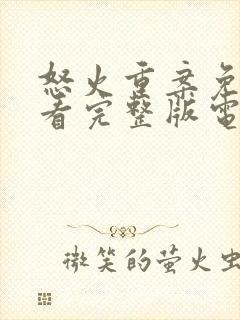 怒火重案免
看完整版電
微笑的萤火虫